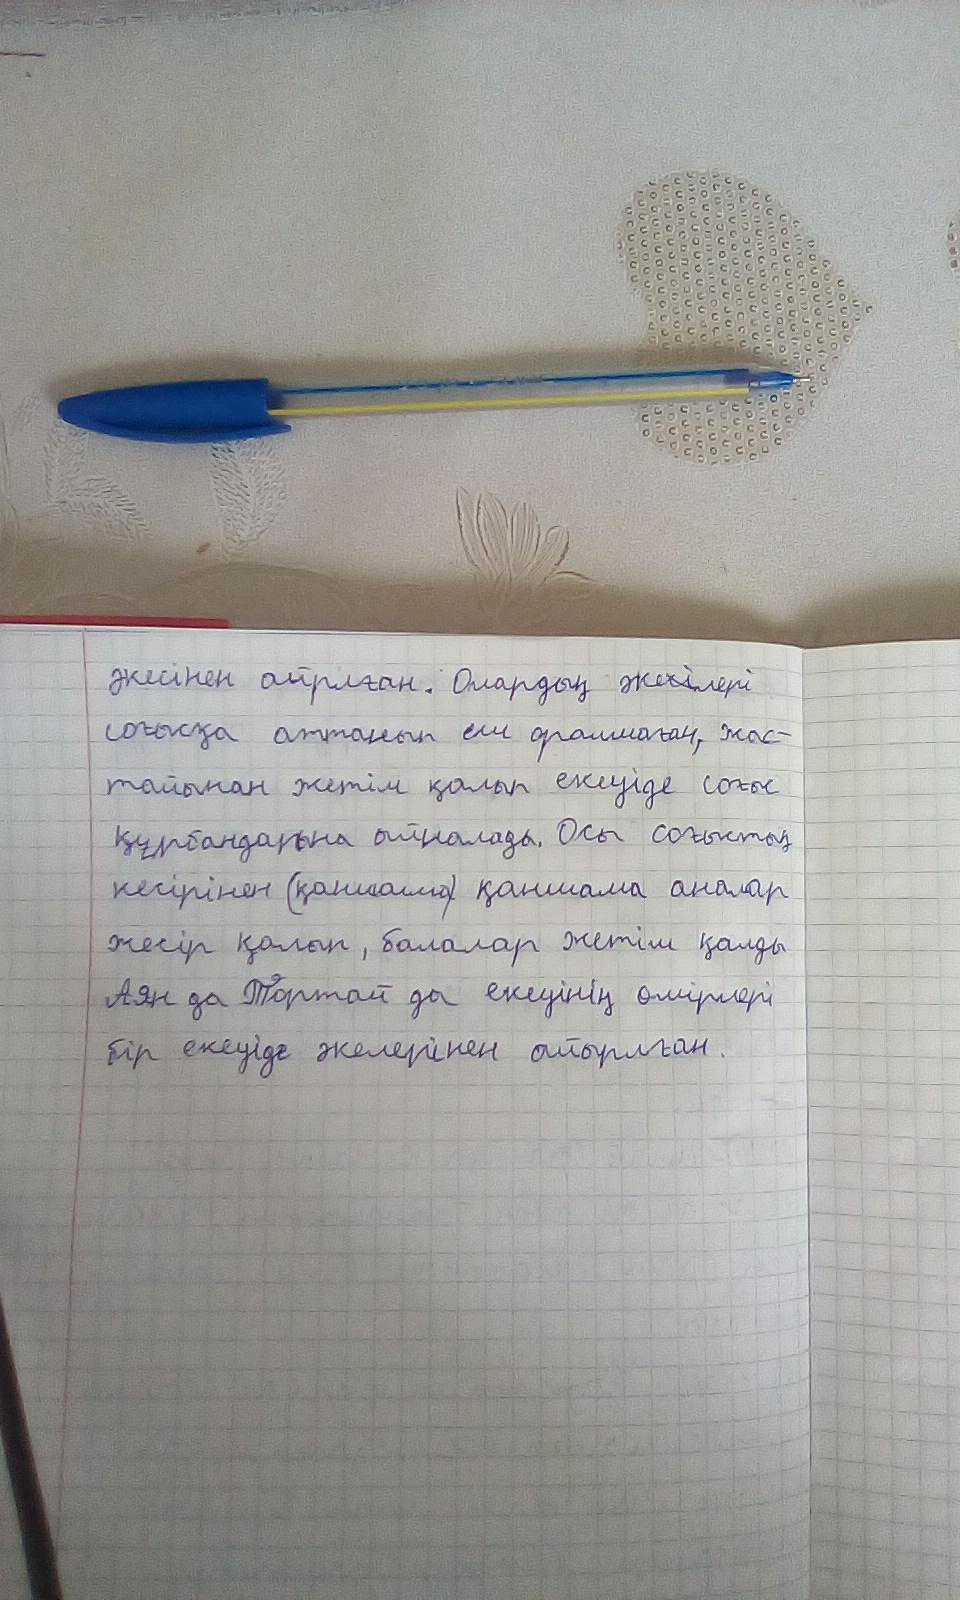 әкесінен айрлған. Олардың әкесілері
соғысқа аттанып еш оралмаған, жас-
тайынан жетім қалып екеуіде соғыс
құрбандарына айналады. Осы соғыстың
кесірінен (қаншама) қаншама аналар
жесір қалып, балалар жетім қалды
Аян да Тортай да екеуінің өмірлері
бір екеуіде әкелерінен айырлған.